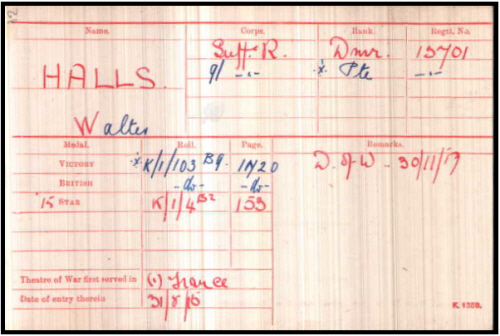 Name. Corps. Rank. Regtl. No.
HALLS. Suff. R. Dmr. 15701
9/ -„- x. Pte -„-
Walter
Medal. Roll. Page. Remarks.
VICTORY x. K/1/103 B9. 1420 D. of W. 30/11/17
BRITISH -do- -do-
'15 STAR K/1/4 B2 153
Theatre of War first served in (1) France
Date of entry therein 31/8/15
K. 1380.